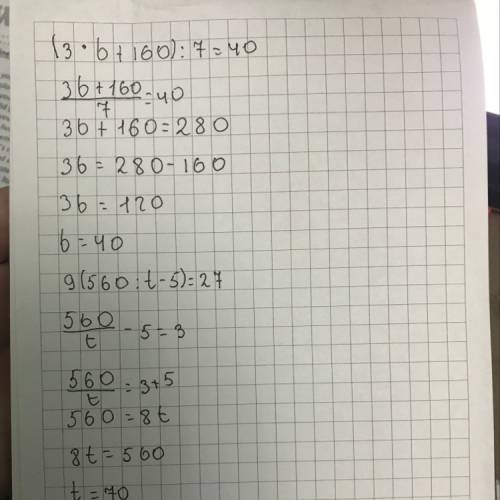 (3·b+160):7=40
3b+160/7=40
3b+160=280
3b=280-160
3b=120
b=40
9(560:t-5)=27
560/t-5=3
560/t=3+5
560=8t
8t=560
t=70